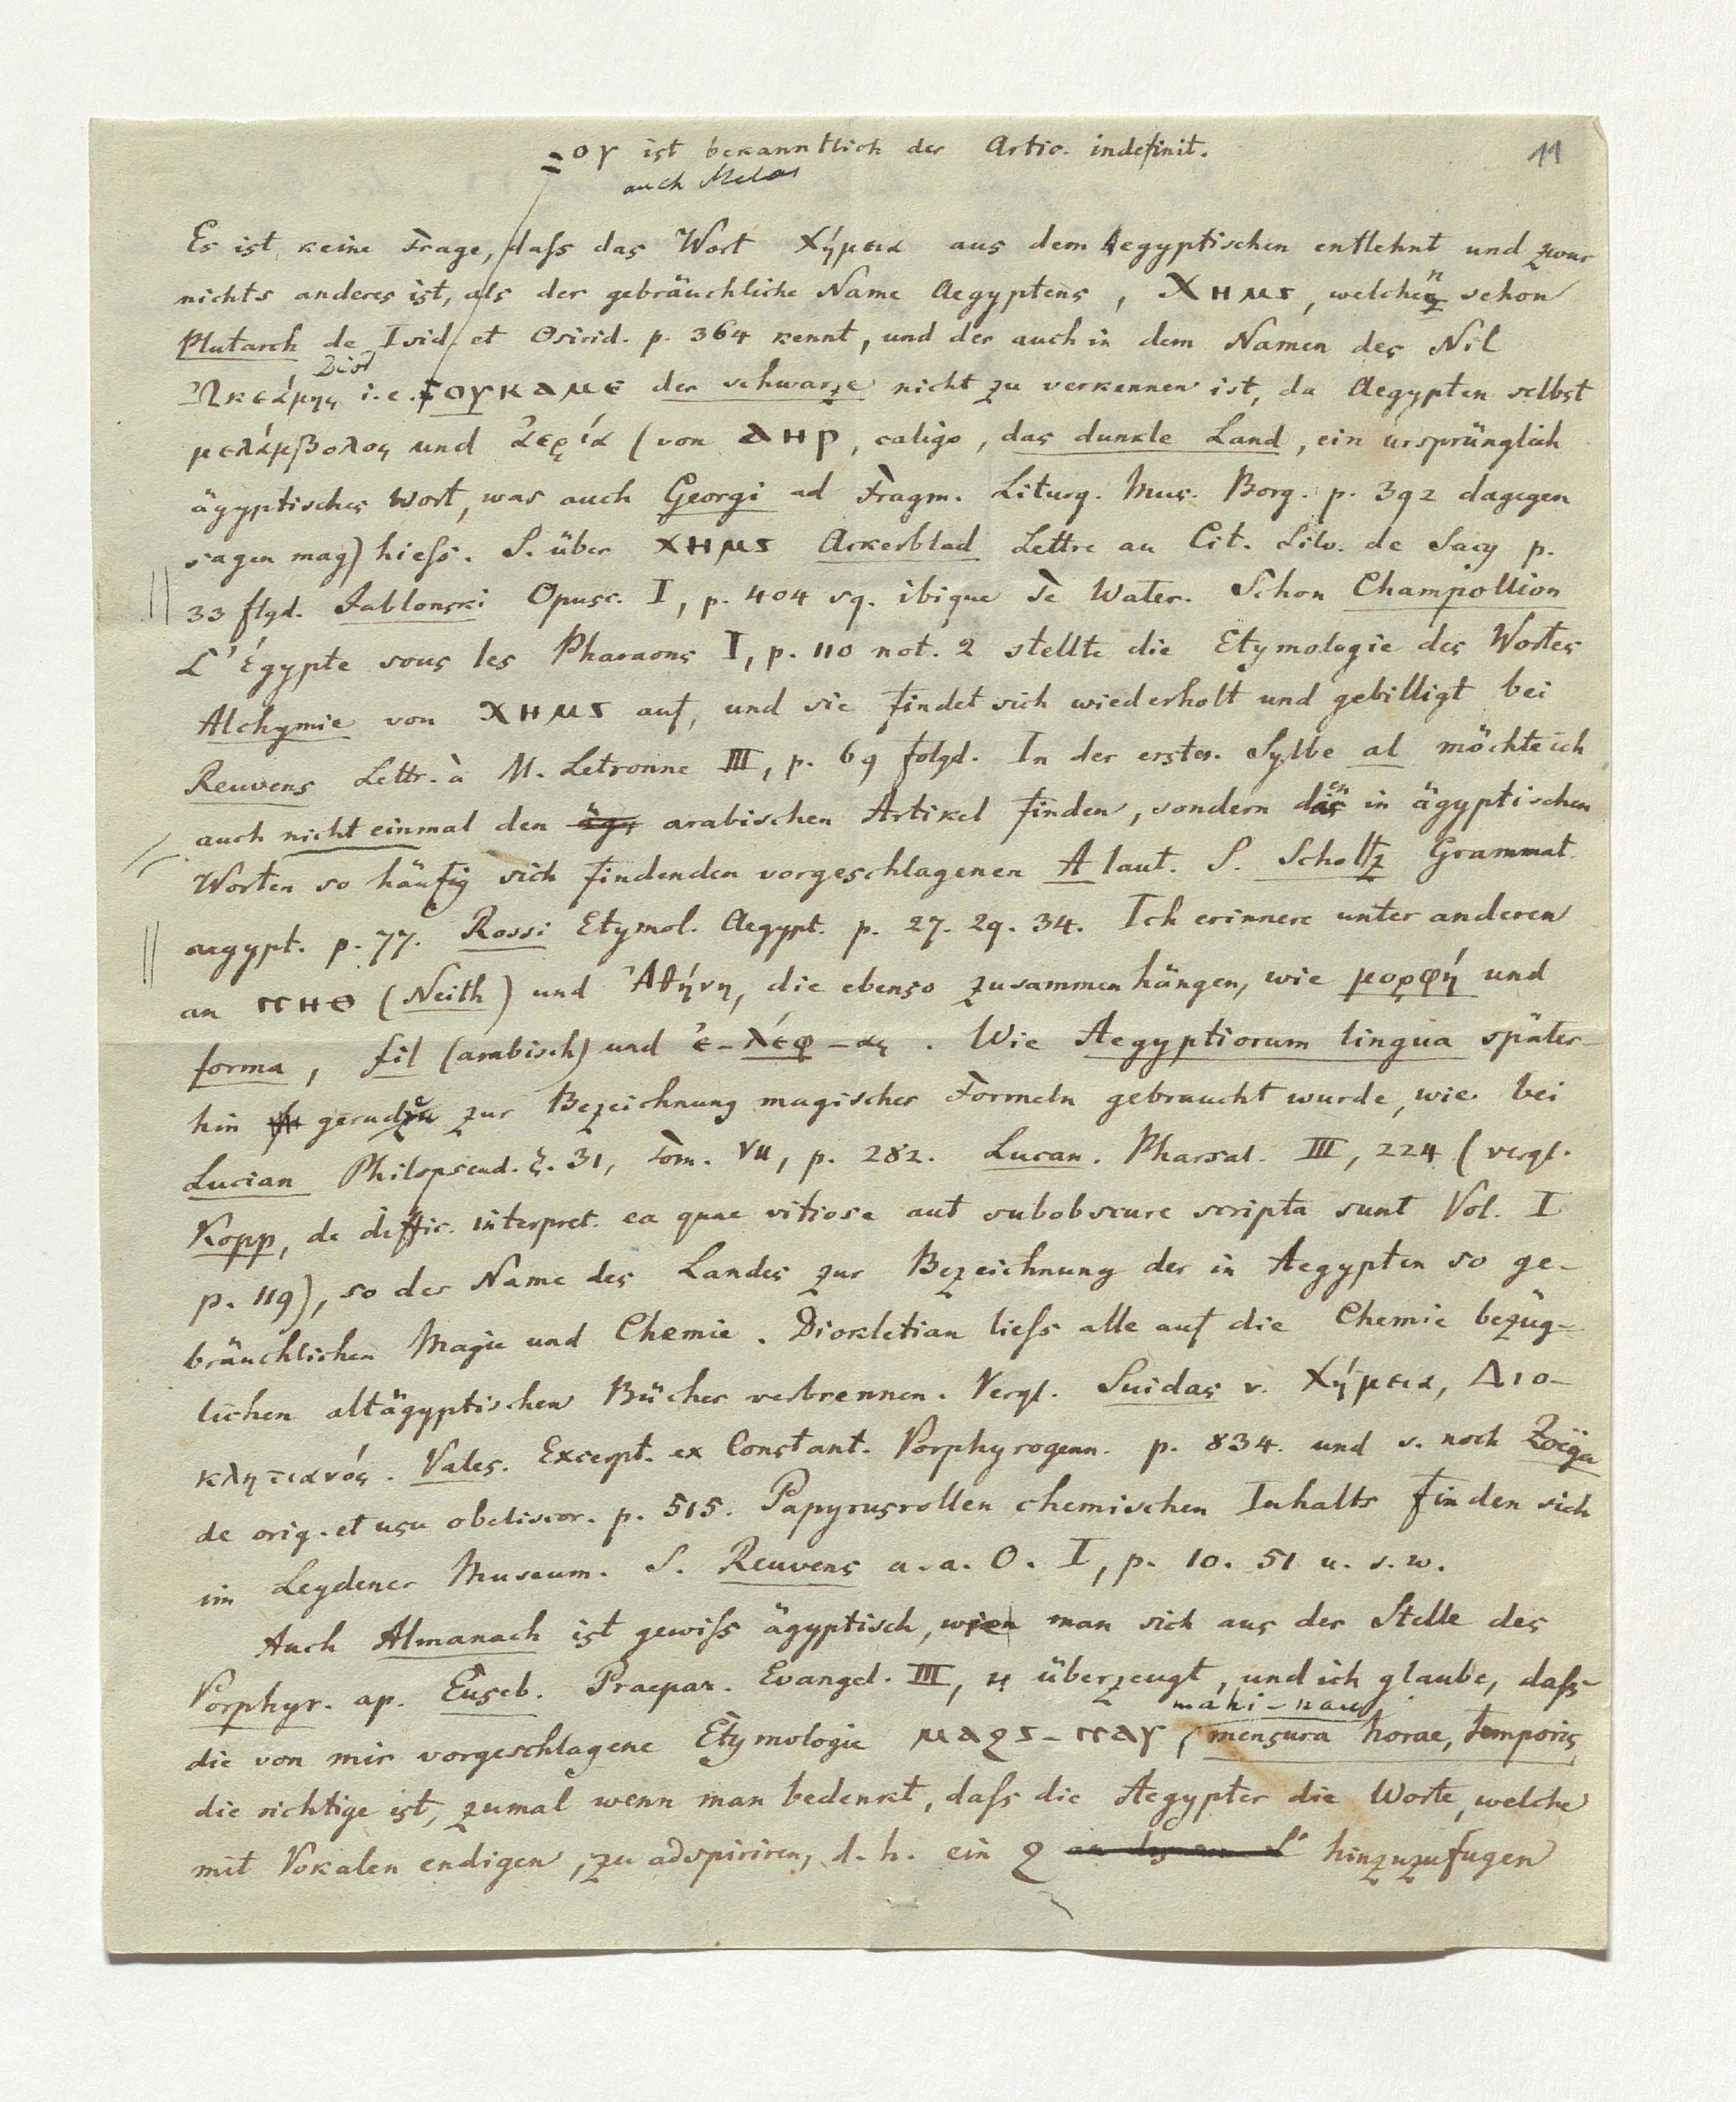 =ογ ist bekanntlich der Artic. indefinit.
11
auch Melas
Es ist keine Frage, daſs das Wort Χήμεια aus dem Aegyptischen entlehnt und zwar
nichts anderes ist, als der gebräuchliche Name Aegyptens, ⲬⲎⲘⲒ, welchen schon
Plutarch de Isid. et Osirid. p. 364 kennt, und der auch in dem Namen des Nil
Diod
Ὠκεάμης i. e. ⲞⲨⲔⲀⲘⲈ der schwarze nicht zu verkennen ist, da Aegypten selbst
μελάμβολος und ἀερία (von ⲀⲎⲢ, caligo, das dunkle Land, ein ursprünglich
ägyptisches Wort, was auch Georgi ad Fragm. Liturg. Mus. Borg. p. 392 dagegen
sagen mag) hieſs. S. über ⲬⲎⲘⲒ Ackerblad Lettre au Cit. Silv. de Sacy p.
33 flgd. Jablonski Opusc. I, p. 404 sq. ibique Te Water. Schon Champollion
L'Égypte sous les Pharaons I, p. 110 not. 2 stellte die Etymologie des Wortes
Alchymie von ⲬⲎⲘⲒ auf, und sie findet sich wiederholt und gebilligt bei
Reuvens Lettr. à M. Letronne III, p. 69 folgd. In der ersten Sylbe al möchte ich
auch nicht einmal den äg arabischen Artikel finden, sondern den in ägyptischen
Worten so häufig sich findenden vorgeschlagenen A laut. S. Scholtz Grammat.
aegypt. p. 77. Rossi Etymol. Aegypt. p. 27. 29. 34. Ich erinnere unter anderen
an ⲚⲎⲐ (Neith) und Ἀθήνη, die ebenso zusammenhängen, wie μορφή und
forma, fil (arabisch) und ἐ-λέφ-ας. Wie Aegyptiorum lingua später-
hin geradezu zur Bezeichnung magischer Formeln gebraucht wurde, wie bei
Lucian Philopseud. ξ. 31, Tom. VII, p. 282. Lucan. Pharsal. III, 224 (vergl.
Kopp, de diffic. interpret. ea quae vitiose aut subobscure scripta sunt Vol. I
p. 119), so der Name des Landes zur Bezeichnung der in Aegypten so ge-
bräuchlichen Magie und Chemie. Diokletian lieſs alle auf die Chemie bezüg-
lichen altägyptischen Bücher verbrennen. Vergl. Suidas v. Χήμεια, Διο-
κλητιανός. Vales. Excerpt. ex Constant. Porphyrogenn. p. 834. und s. noch Zoëga
de orig. et usu obeliscor. p. 515. Papyrusrollen chemischen Inhalts finden sich
im Leydener Museum. S. Reuvens a. a. O. I, p. 10. 51 u. s. w.
Auch Almanach ist gewiſs ägyptisch, wie man sich aus der Stelle des
Porphyr. ap. Euseb. Praepar. Evangel. III, 4 überzeugt, und ich glaube, daſs
mahi-nau
die von mir vorgeschlagene Etymologie ⲘⲀϨⲒ-ⲚⲀⲨ, mensura horae, temporis
die richtige ist, zumal wenn man bedenkt, daſs die Aegypter die Worte, welche
mit Vokalen endigen, zu adspiriren, d. h. ein Ϩ hinzuzufugen